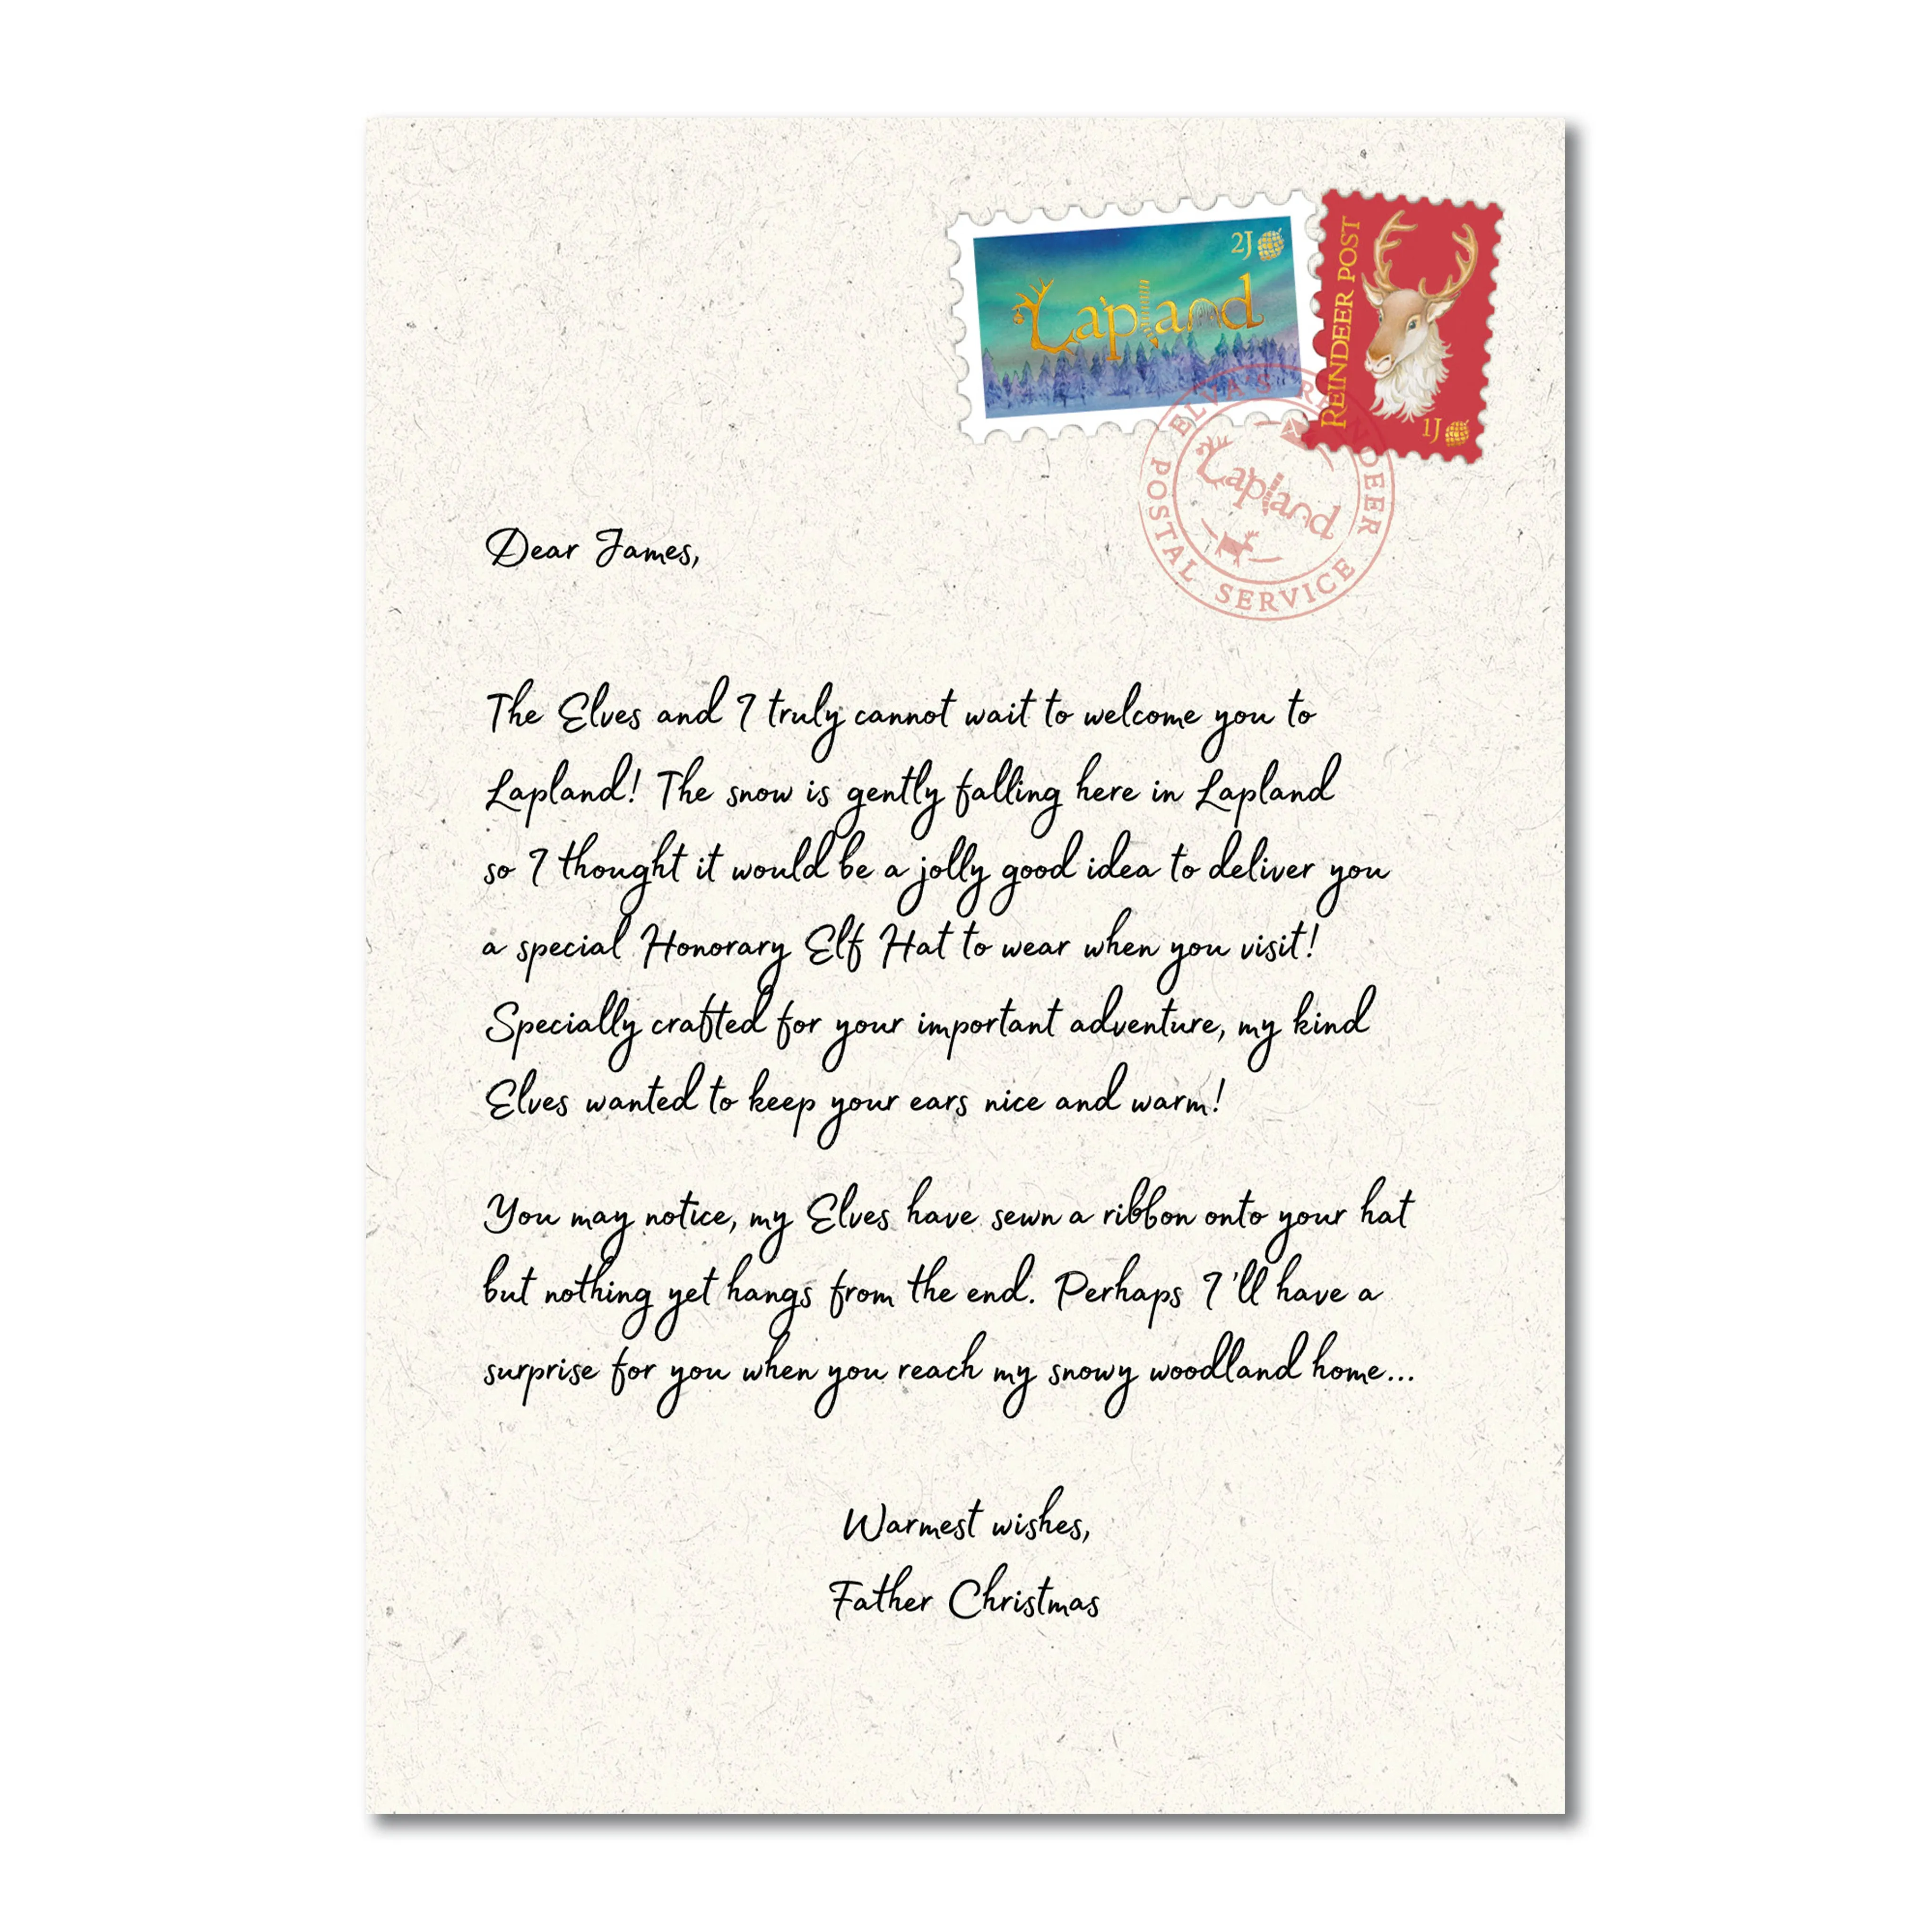 2J
Lapland
REINDEER POST
1J
ELVA'S REINDEER POSTAL SERVICE
Lapland
Dear James,
The Elves and I truly cannot wait to welcome you to
Lapland! The snow is gently falling here in Lapland
so I thought it would be a jolly good idea to deliver you
a special Honorary Elf Hat to wear when you visit!
Specially crafted for your important adventure, my kind
Elves wanted to keep your ears nice and warm!
You may notice, my Elves have sewn a ribbon onto your hat
but nothing yet hangs from the end. Perhaps I'll have a
surprise for you when you reach my snowy woodland home...
Warmest wishes,
Father Christmas